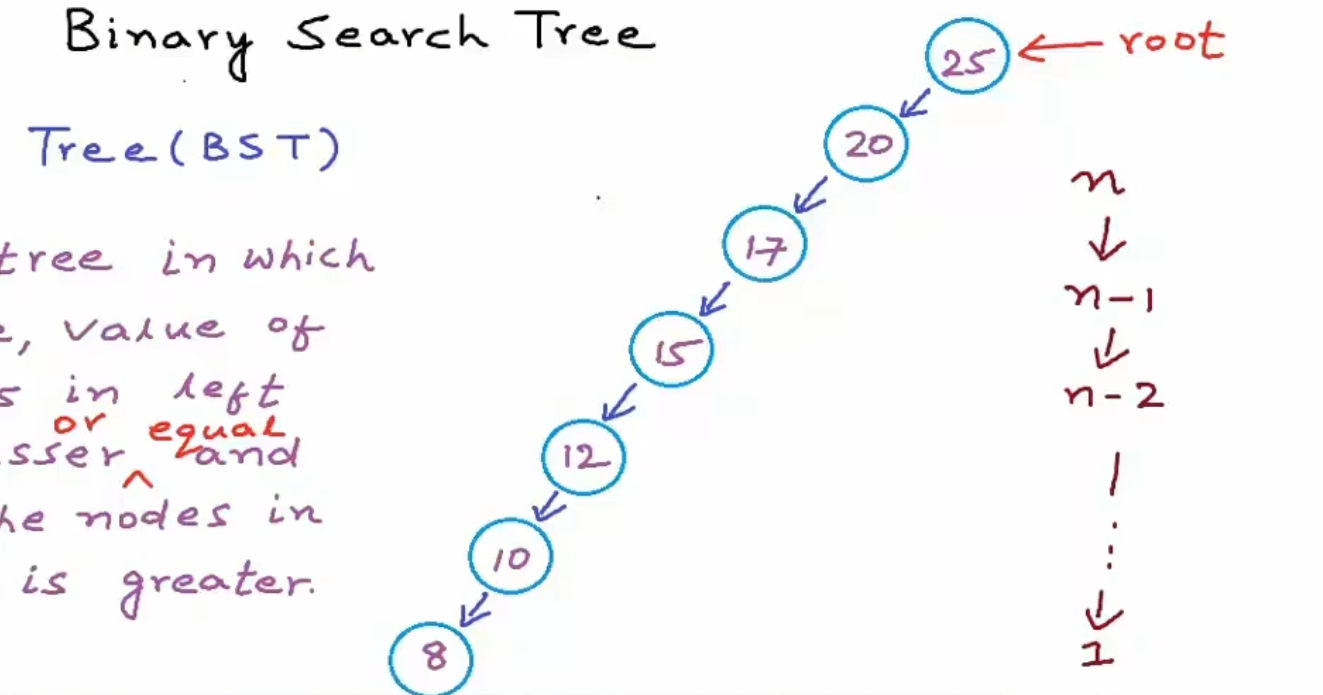 Binary Search Tree
Tree (BST)
tree in which
value of
in left
or equal
and
nodes in
is greater.
25 ← root
20
17
15
12
10
8
n
↓
n-1
↓
n-2
|
⋮
↓
1